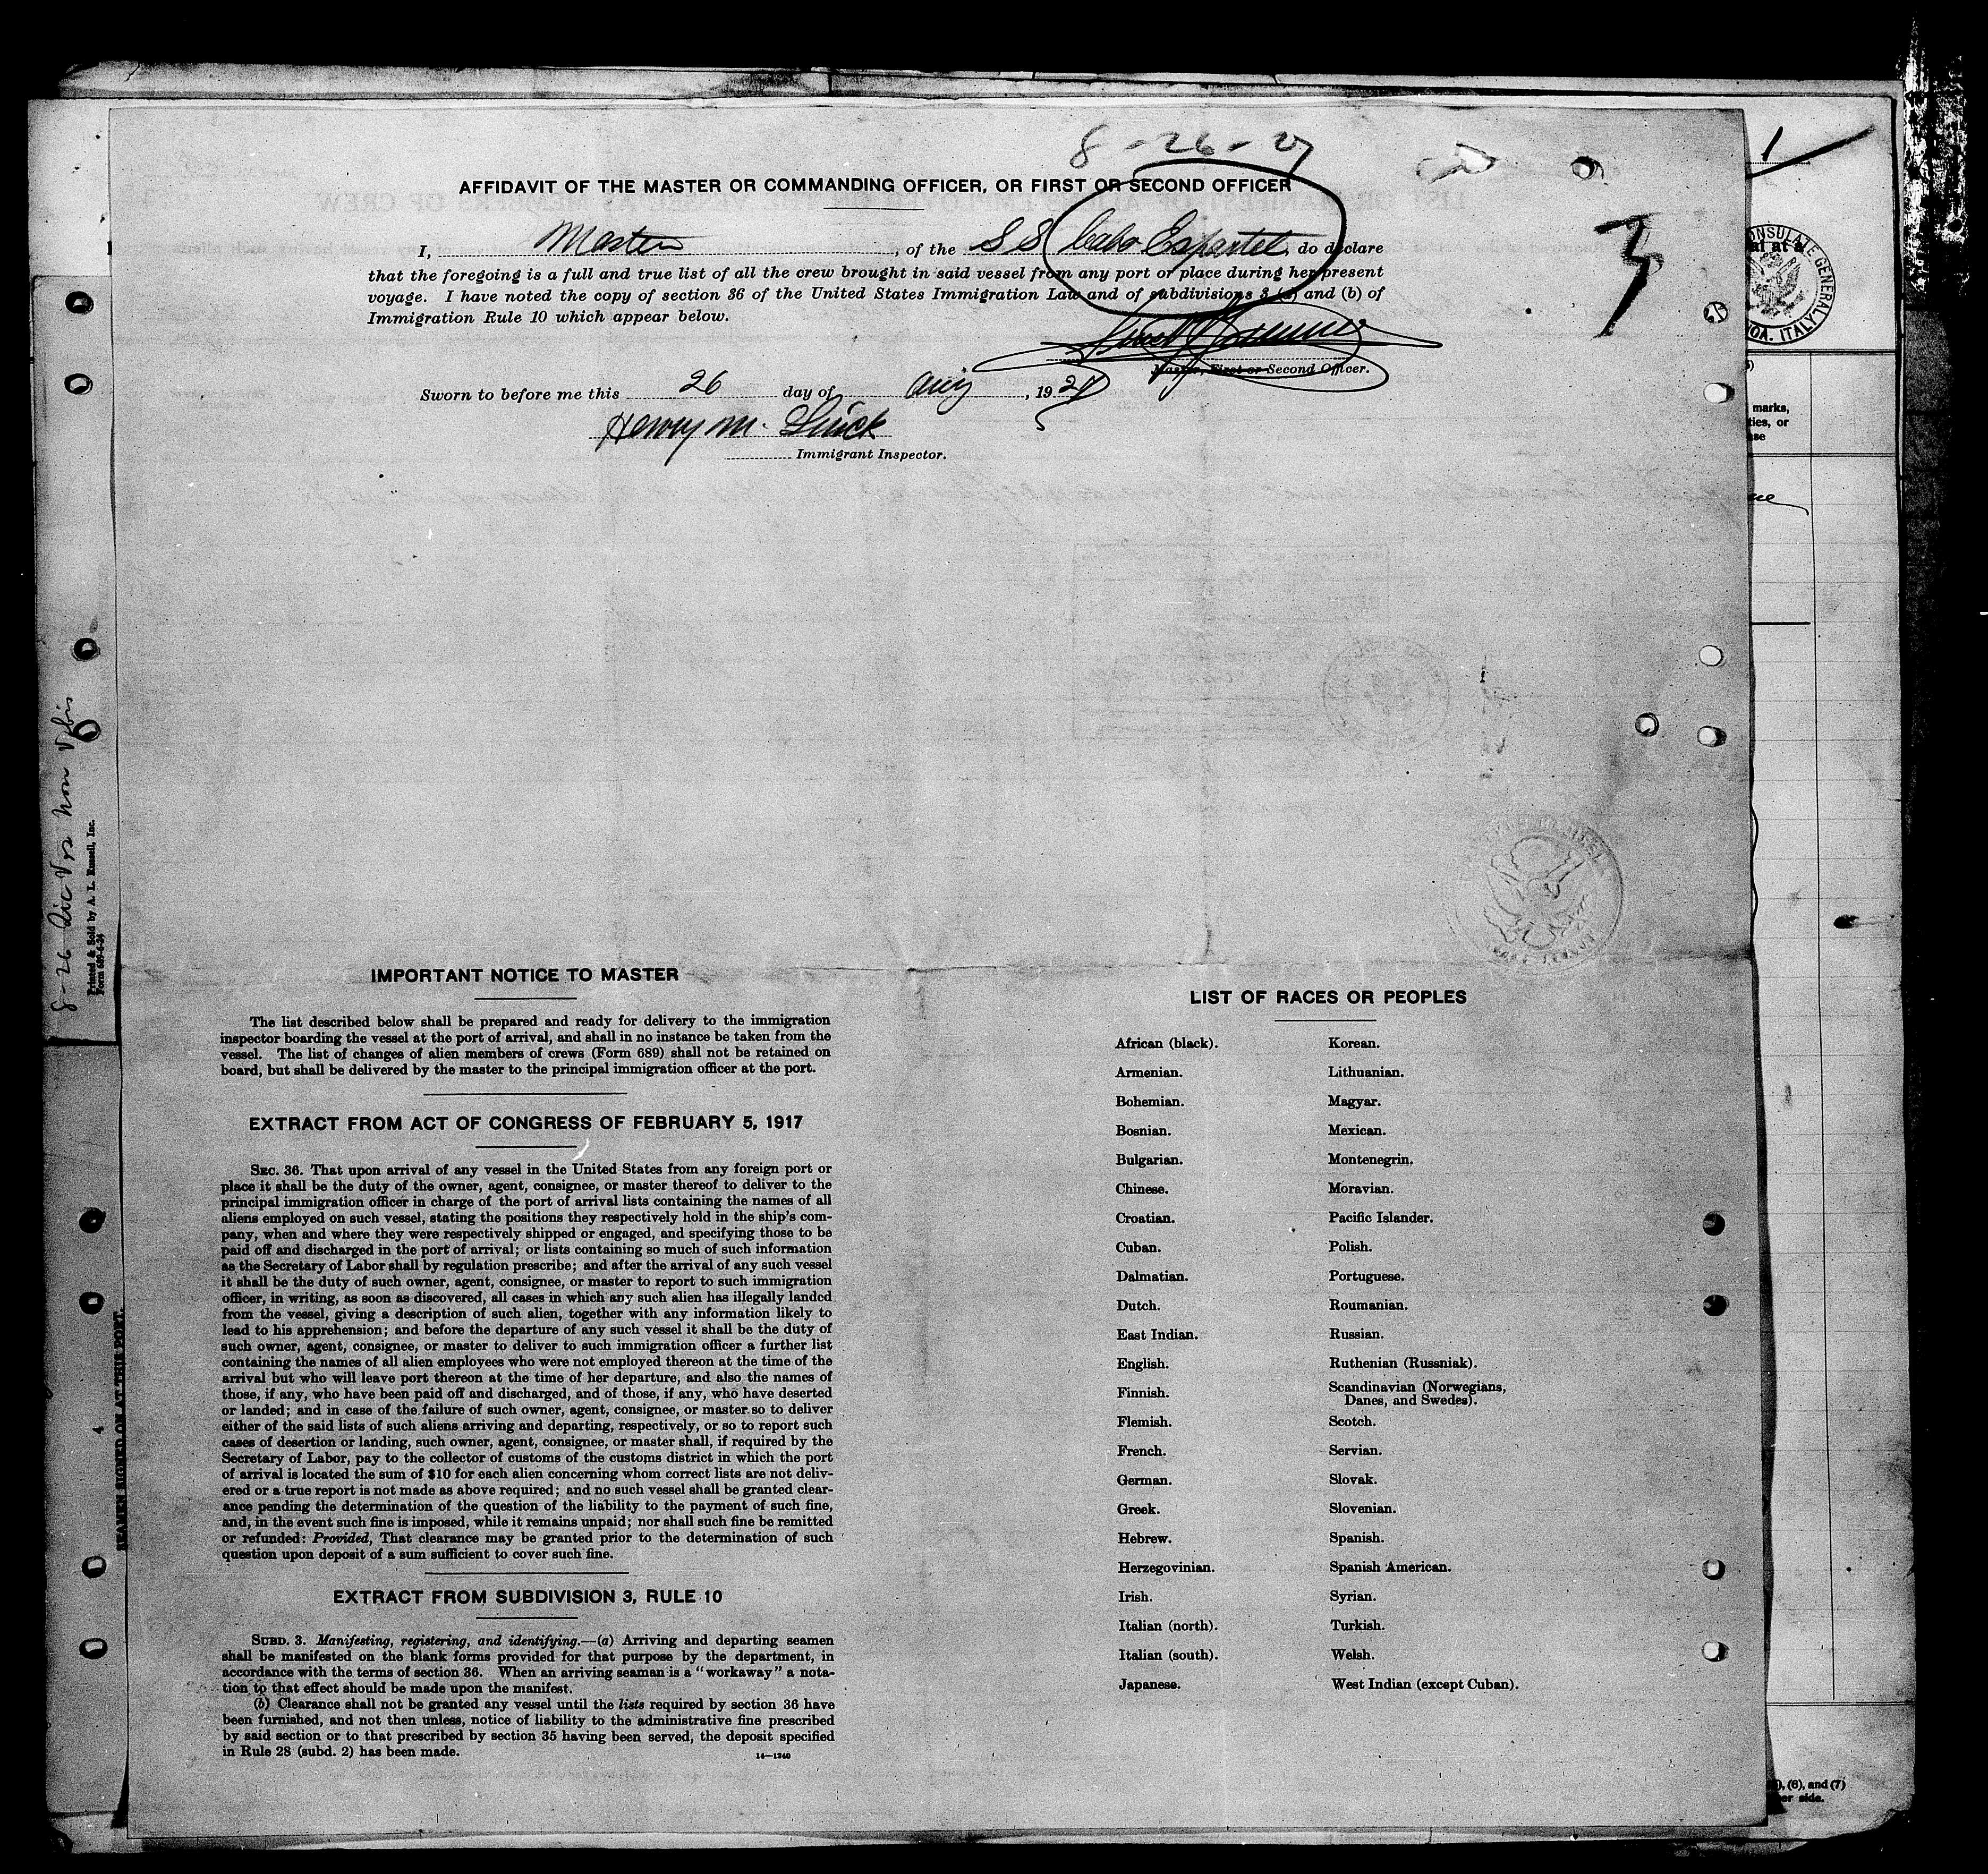 8-26-27
AFFIDAVIT OF THE MASTER OR COMMANDING OFFICER, OR FIRST OR SECOND OFFICER
I, Master, of the S S Cabo Espartel do declare
that the foregoing is a full and true list of all the crew brought in said vessel from any port or place during her present
voyage. I have noted the copy of section 36 of the United States Immigration Law and of subdivisions 3 (a) and (b) of
Immigration Rule 10 which appear below.
Master, First or Second Officer.
Sworn to before me this 26 day of Aug, 1927
Henry M.
Immigrant Inspector.
3
1
CONSULATE GENERAL
ITALY
marks,
ties, or
8-26
Printed & Sold by A. L. Russell, Inc.
Form 689-4-24
4
SEAMEN SIGNED ON AT THIS PORT.
IMPORTANT NOTICE TO MASTER
The list described below shall be prepared and ready for delivery to the immigration
inspector boarding the vessel at the port of arrival, and shall in no instance be taken from the
vessel. The list of changes of alien members of crews (Form 689) shall not be retained on
board, but shall be delivered by the master to the principal immigration officer at the port.
EXTRACT FROM ACT OF CONGRESS OF FEBRUARY 5, 1917
SEC. 36. That upon arrival of any vessel in the United States from any foreign port or
place it shall be the duty of the owner, agent, consignee, or master thereof to deliver to the
principal immigration officer in charge of the port of arrival lists containing the names of all
aliens employed on such vessel, stating the positions they respectively hold in the ship's com-
pany, when and where they were respectively shipped or engaged, and specifying those to be
paid off and discharged in the port of arrival; or lists containing so much of such information
as the Secretary of Labor shall by regulation prescribe; and after the arrival of any such vessel
it shall be the duty of such owner, agent, consignee, or master to report to such immigration
officer, in writing, as soon as discovered, all cases in which any such alien has illegally landed
from the vessel, giving a description of such alien, together with any information likely to
lead to his apprehension; and before the departure of any such vessel it shall be the duty of
such owner, agent, consignee, or master to deliver to such immigration officer a further list
containing the names of all alien employees who were not employed thereon at the time of the
arrival but who will leave port thereon at the time of her departure, and also the names of
those, if any, who have been paid off and discharged, and of those, if any, who have deserted
or landed; and in case of the failure of such owner, agent, consignee, or master so to deliver
either of the said lists of such aliens arriving and departing, respectively, or so to report such
cases of desertion or landing, such owner, agent, consignee, or master shall, if required by the
Secretary of Labor, pay to the collector of customs of the customs district in which the port
of arrival is located the sum of $10 for each alien concerning whom correct lists are not deliv-
ered or a true report is not made as above required; and no such vessel shall be granted clear-
ance pending the determination of the question of the liability to the payment of such fine,
and, in the event such fine is imposed, while it remains unpaid; nor shall such fine be remitted
or refunded: Provided, That clearance may be granted prior to the determination of such
question upon deposit of a sum sufficient to cover such fine.
EXTRACT FROM SUBDIVISION 3, RULE 10
SUBD. 3. Manifesting, registering, and identifying.—(a) Arriving and departing seamen
shall be manifested on the blank forms provided for that purpose by the department, in
accordance with the terms of section 36. When an arriving seaman is a "workaway" a nota-
tion to that effect should be made upon the manifest.
(b) Clearance shall not be granted any vessel until the lists required by section 36 have
been furnished, and not then unless, notice of liability to the administrative fine prescribed
by said section or to that prescribed by section 35 having been served, the deposit specified
in Rule 28 (subd. 2) has been made.
14—1240
LIST OF RACES OR PEOPLES
African (black). Korean.
Armenian. Lithuanian.
Bohemian. Magyar.
Bosnian. Mexican.
Bulgarian. Montenegrin.
Chinese. Moravian.
Croatian. Pacific Islander.
Cuban. Polish.
Dalmatian. Portuguese.
Dutch. Roumanian.
East Indian. Russian.
English. Ruthenian (Russniak).
Finnish. Scandinavian (Norwegians,
Danes, and Swedes).
Flemish. Scotch.
French. Servian.
German. Slovak.
Greek. Slovenian.
Hebrew. Spanish.
Herzegovinian. Spanish American.
Irish. Syrian.
Italian (north). Turkish.
Italian (south). Welsh.
Japanese. West Indian (except Cuban).
(6), and (7)
side.